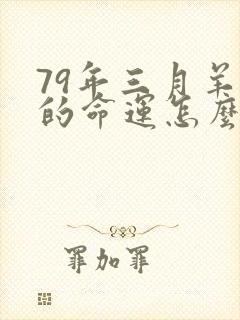 79年三月羊
的命運怎麼
罪加罪